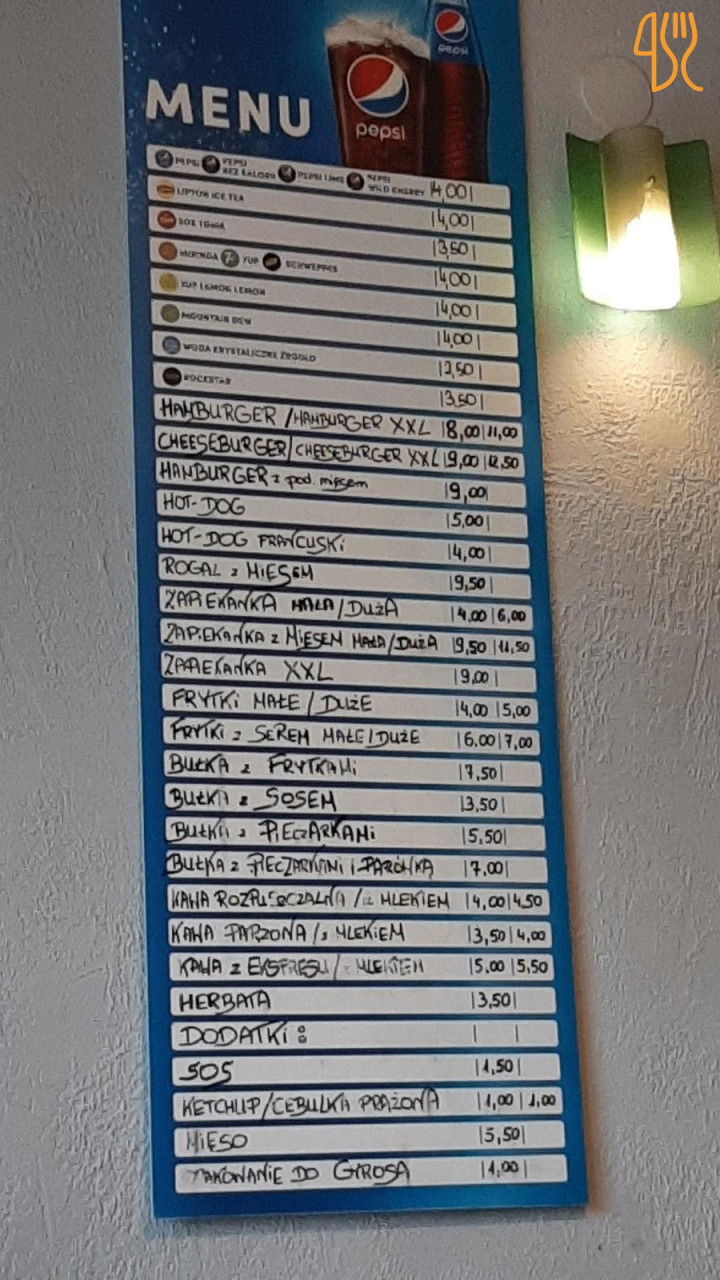 pepsi
pepsi
MENU
PEPSI PEPSI BEZ KALORII PEPSI LIME PEPSI WILD CHERRY |4,00|
LIPTON ICE TEA |4,00|
|3,50|
MIRINDA 7UP SCHWEPPES |4,00|
7UP LEMON LEMON |4,00|
MOUNTAIN DEW |4,00|
WODA KRYSTALICZNE ŹRÓDŁO |2,50|
ROCKSTAR |3,50|
HAMBURGER /HAMBURGER XXL |8,00|11,00
CHEESEBURGER/CHEESEBURGER XXL |9,00|12,50
HAMBURGER z pod. mięsem |9,00|
HOT-DOG |5,00|
HOT-DOG FRANCUSKi |4,00|
ROGAL z MIĘSEM |9,50|
ZAPIEKANKA MAŁA/DUŻA |4,00|6,00
ZAPIEKANKA z MięSEM MAŁA/DUŻA |9,50|11,50
ZAPIEKANKA XXL |9,00|
FRYTKi MAŁE/DUŻE |4,00|5,00
FRYTKi z SEREM MAŁE/DUŻE |6,00|7,00
BUŁKA z FRYTKAMi |7,50|
BUŁKA z SOSEM |3,50|
BUŁKA z PIECZARKAMi |5,50|
BUŁKA z PIECZARKAMi i PARÓWKĄ |7,00|
KAWA ROZPUSZCZALNA /z MLEKIEM |4,00|4,50
KAWA PARZONA /z MLEKIEM |3,50|4,00
KAWA z EKSPRESU/z MLEKIEM |5,00|5,50
HERBATA |3,50|
DODATKi :
SOS |1,50|
KETCHUP/CEBULKA PRAŻONA |1,00|1,00
MIĘSO |5,50|
PAKOWANIE DO GYROSA |1,00|